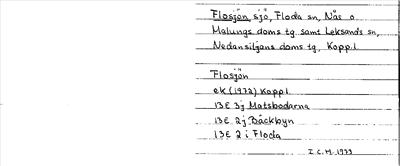 Flosjön, sjö, Floda sn, Nås o.
Malungs doms tg. samt Leksands sn,
Nedansiljans doms tg, Kopp.l.
Flosjön
ek (1972) Kopp l
13E 3j Matsbodarna
13E 2j Bäckbyn
13E 2 i Floda
I.C.M. 1973